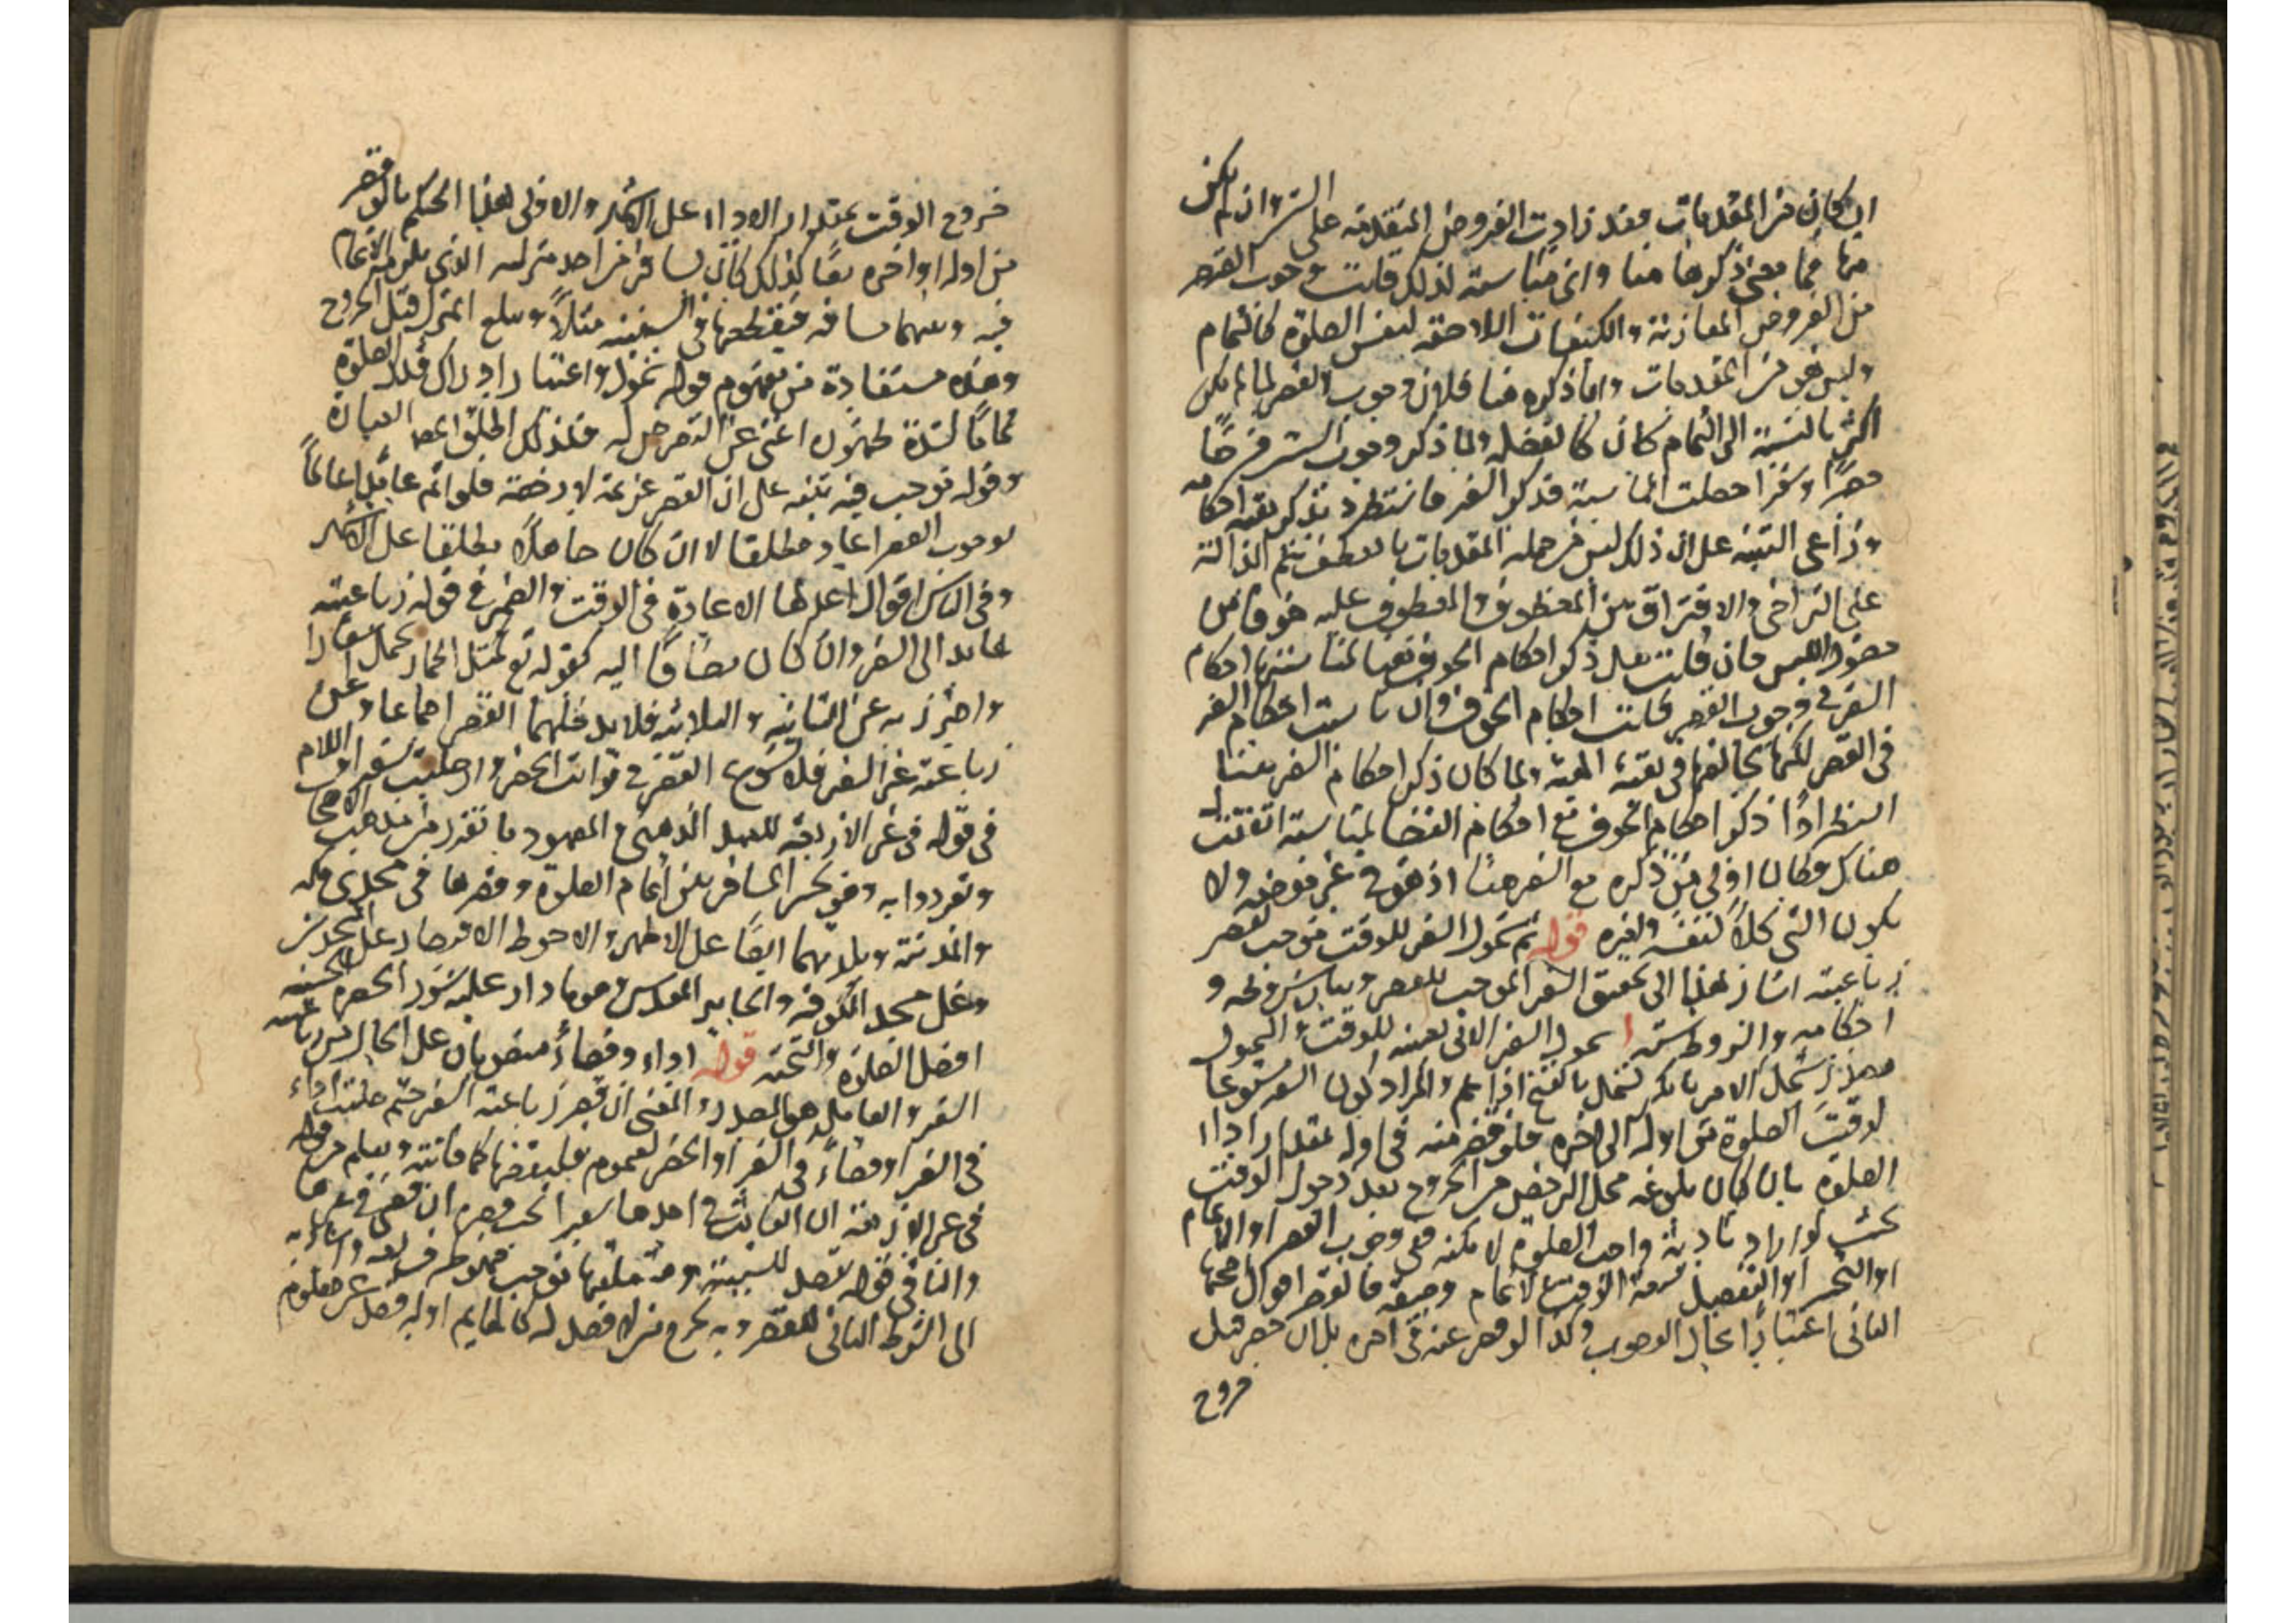 ان كان من المقدمات فقد زادت الفروض المتقدمة على الستين وان لم يكن
منها فما معنى ذكرها هنا واى مناسبة لذلك قلت وجوب القصر
من الفروض المقارنة والكيفيات اللاحقة لنفس الصلوة كالتمام
وليس هو من المقدمات وانما ذكره هنا فلان وجوب القصر لما لم يكن
اكثر بالنسبة الى التمام كان كالفضلة ولما ذكر وجوب الستين فرضا
حضرا وسفرا حصلت المناسبة فذكر السفر فاستطرد بذكر بقية احكامه
وراعى التنبيه على ان ذلك ليس من جملة المقدمات بالعطف بثم الدالة
على التراخى والافتراق بين المعطوف والمعطوف عليه هو فاضل
فان قلت هلا ذكر احكام الخوف ايضا لمناسبتها احكام
السفر في وجوب القصر قلت احكام الخوف وان ناسبت احكام السفر
في القصر لكنها تخالفها في بقية الهيئة ولما كان ذكر احكام السفر هنا
استطرادا ذكر احكام الخوف مع احكام القضا لمناسبة اتفقت
هناك وكان اولى من ذكره مع السفر هنا اذ هو في غير موضعه ولا
يكون الشى كلا لنفسه ولغيره قوله ثم شمول السفر للوقت فيوجب قصر
رباعيته اشار بهذا الى تحقيق السفر الموجب للقصر وبيان شروطه و
احكامه والشروط ستة ا شمول السفر الاتى تعيينه للوقت والشمول
مصدر شمل الامر بالكسر يشمل بالفتح اذا عم والمراد كون السفر مستوعبا
لوقت الصلوة من اوله الى اخره فلو حضر منه في اوله بمقدار اداء
الصلوة بان كان بلوغه محل الترخص من الخروج بعد دخول الوقت
بحيث لو اراد تادية واجب الصلوة لامكنه ففي وجوب القصر او الاتمام
او التخيير او التفصيل بسعة الوقت للاتمام وضيقه فالقصر اقوال اصحها
الثانى اعتبارا بحال الوجوب وكذا لو حضر عنه في اخره بان حضر قبل
خروج
خروج الوقت بمقدار الاداء على الاشهر والاولى لهذا الحكم بالو قصر
من اوله او اخره معا كذلك كان سافر من احد منزليه الذى يلزمه الاتمام
فيه وبينهما مسافة فيقطعها في السفينة مثلا ويبلغ المنزل قبل الخروج
وهذه مستفادة من مفهوم قوله شمول واعتبار ادراك قدر الصلوة
تماما لشدة ظهوره اغنى عن التعرض له فلذلك اطلق العبارة
وقوله فيوجب فيه تنبيه على ان القصر عزيمة لا رخصة فلو اتم عامدا عالما
بوجوب القصر اعاد مطلقا لا ان كان جاهلا مطلقا على الاشهر
وفي الناسى اقوال اعدلها الاعادة في الوقت والضمير في قوله رباعيته
عايد الى السفر وان كان مضافا اليه كقوله تع كمثل الحمار يحمل اسفارا
واحترز به عن الثنائية والثلاثية فلا يدخلهما القصر اجماعا وعن
رباعية غير السفر فلا يشرع القصر في فوائت الحضر وان صليت سفرا واللام
في قوله في غير الاربعة للعهد الذهنى والمعهود ما تقرر من مذهب الاصحاب
وتفردوا به وهو تخير المسافر بين اتمام الصلوة وقصرها في مسجدى مكة
والمدينة وبلديهما ايضا على الاظهر والاحوط الاقتصار على المسجدين
وعلى مسجد الكوفة والحاير المقدس وهو ما دار عليه سور الحضرة الحسينية
افضل الصلوة والتحية قوله اداء وقضاء منصوبان على الحال من رباعية
السفر والعامل هو المصدر والمعنى ان قصر رباعية السفر حتم صليت اداء
في السفر او قضاء في السفر او الحضر لعموم فليقضها كما فاتته ويعلم من قوله
في غير الاربعة ان الفائت في احدها سفرا تحتم قصره ان قضى في غيرها
والباء في قوله بقصد للسببية ومتعلقها فيوجب
الى الشرط الثانى للقصر وبه يخرج من لا قصد له كالهايم او له قصد غير معلوم